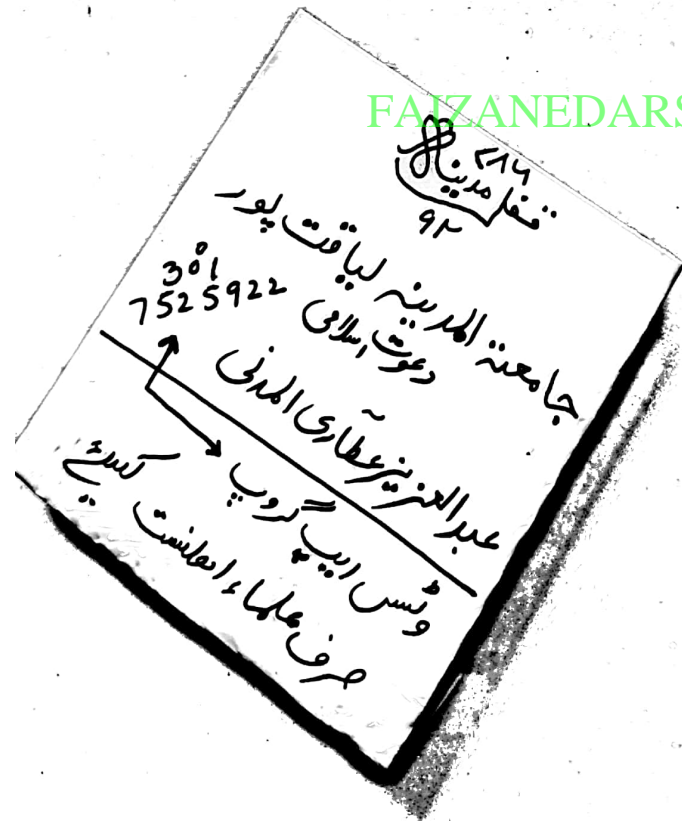 FAIZANEDARS
۷۸۶
قفل مدینہ
۹۲
جامعۃ المدینہ لیاقت پور
دعوت اسلامی
0301
7525922
عبدالعزیز عطاری المدنی
وٹس ایپ گروپ
صرف علماء اھلسنت کیلئے